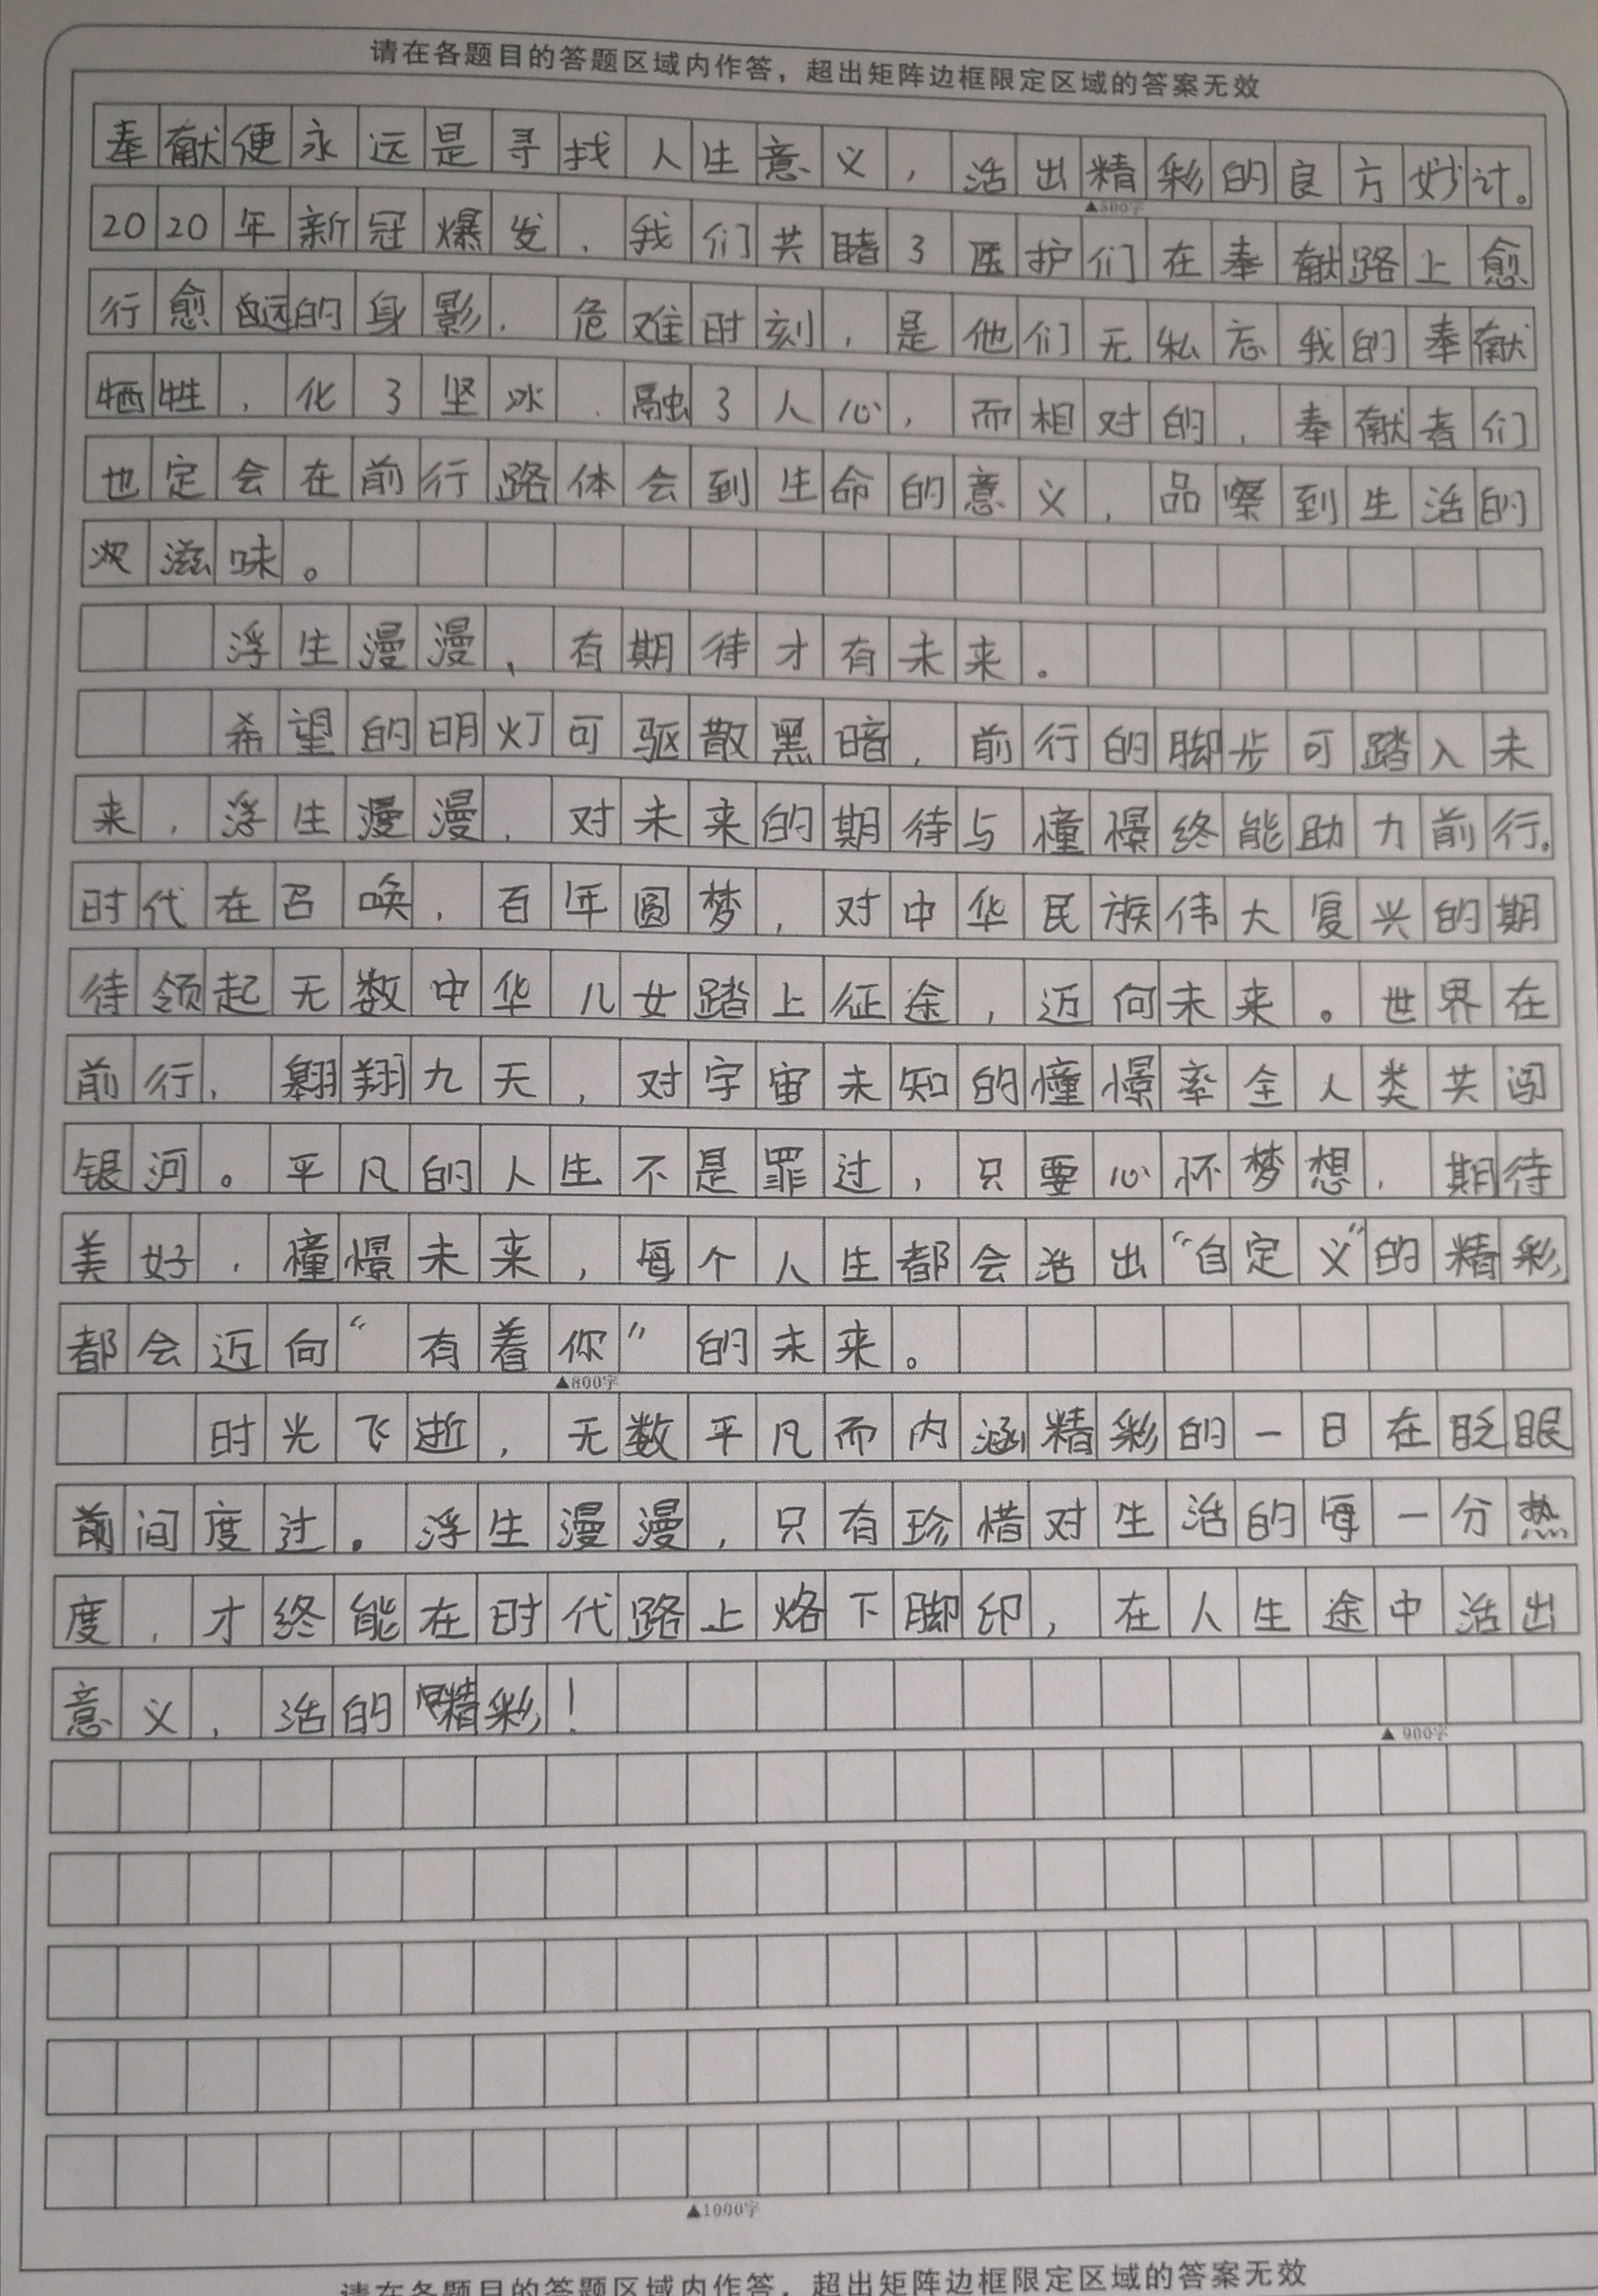 请在各题目的答题区域内作答，超出矩阵边框限定区域的答案无效
奉献便永远是寻找人生意义，活出精彩的良方妙计。
▲500字
2020年新冠爆发，我们共睹了医护们在奉献路上愈
行愈远的身影。危难时刻，是他们无私忘我的奉献
牺牲，化了坚冰，融了人心，而相对的，奉献者们
也定会在前行路体会到生命的意义，品察到生活的
欢滋味。
浮生漫漫，有期待才有未来。
希望的明灯可驱散黑暗，前行的脚步可踏入未
来，浮生漫漫，对未来的期待与憧憬终能助力前行。
时代在召唤，百年圆梦，对中华民族伟大复兴的期
待领起无数中华儿女踏上征途，迈向未来。世界在
前行，翱翔九天，对宇宙未知的憧憬率全人类共闯
银河。平凡的人生不是罪过，只要心怀梦想，期待
美好，憧憬未来，每个人生都会活出“自定义”的精彩
都会迈向“有着你”的未来。
▲800字
时光飞逝，无数平凡而内涵精彩的一日在眨眼
前间度过。浮生漫漫，只有珍惜对生活的每一分热
度，才终能在时代路上烙下脚印，在人生途中活出
意义，活的精彩！
▲900字
▲1000字
请在各题目的答题区域内作答，超出矩阵边框限定区域的答案无效